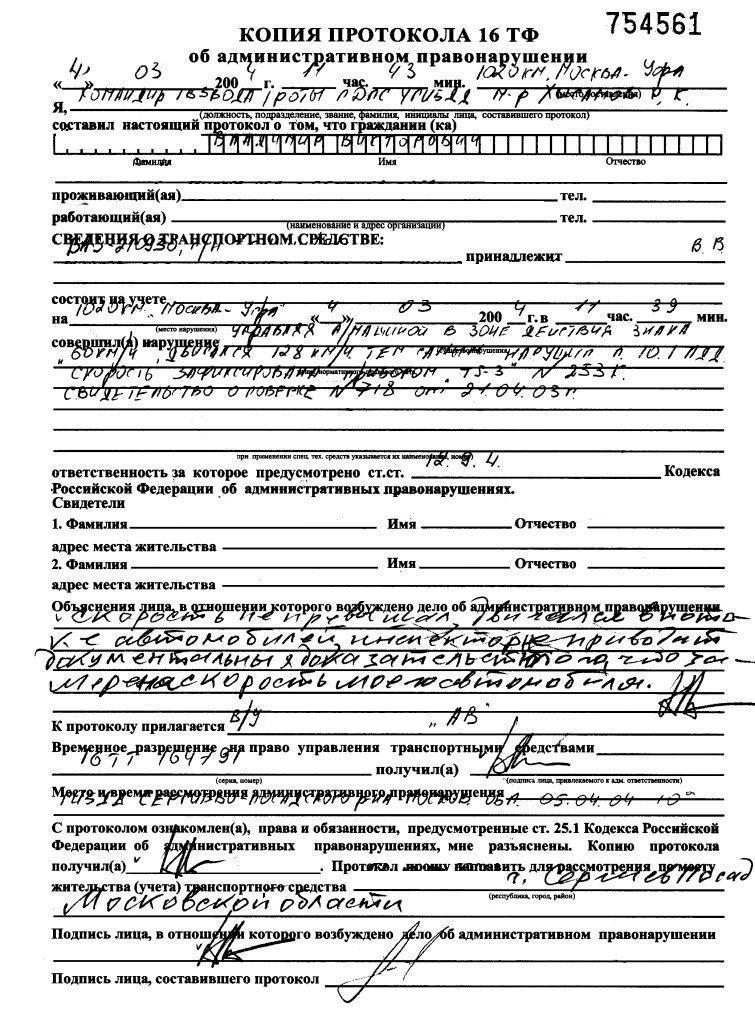 754561
КОПИЯ ПРОТОКОЛА 16 ТФ
об административном правонарушении
« 4 » 03 200 4 г. 11 час. 43 мин. 1020 км. Москва - Уфа
(место составления)
Я, Командир взвода роты ДПС УГИБДД м-р Р. К.
(должность, подразделение, звание, фамилия, инициалы лица, составившего протокол)
составил настоящий протокол о том, что гражданин (ка)
Владимир Викторович
Фамилия Имя Отчество
проживающий(ая) тел.
работающий(ая) тел.
(наименование и адрес организации)
СВЕДЕНИЯ О ТРАНСПОРТНОМ СРЕДСТВЕ:
ВАЗ-210930, принадлежит В. В.
состоит на учете
на 1020 км. "Москва - Уфа" « 4 » 03 200 4 г. в 11 час. 39 мин.
(место нарушения)
управляя а/машиной в зоне действия знака
совершил(а) нарушение
"60 км/ч", двигался 128 км/ч тем самым нарушил п. 10.1 ПДД.
скорость зафиксирована прибором № 2531.
свидетельство о поверке № 718 от 21.04.03 г.
при применении спец. тех. средств указывается их наименование, номер)
ответственность за которое предусмотрено ст.ст. 12.9.4. Кодекса
Российской Федерации об административных правонарушениях.
Свидетели
1. Фамилия Имя Отчество
адрес места жительства
2. Фамилия Имя Отчество
адрес места жительства
Объяснения лица, в отношении которого возбуждено дело об административном правонарушении
скорость не превышал, двигался в пото-
ке автомобилей, инспектор не приводит
документальных доказательств того что за-
мерена скорость моего автомобиля.
К протоколу прилагается В/У "АВ"
Временное разрешение на право управления транспортными средствами
16ТТ 164791 получил(а)
(серия, номер) (подпись лица, привлекаемого к адм. ответственности)
Место и время рассмотрения административного правонарушения
ГИБДД Сергиево-Посадского р-на Москов. обл. 05.04.04 10⁰⁰
С протоколом ознакомлен(а), права и обязанности, предусмотренные ст. 25.1 Кодекса Российской
Федерации об административных правонарушениях, мне разъяснены. Копию протокола
получил(а) . Протокол прошу направить для рассмотрения по месту
жительства (учета) транспортного средства г. Сергиев Посад
(республика, город, район)
Московской области
Подпись лица, в отношении которого возбуждено дело об административном правонарушении
Подпись лица, составившего протокол